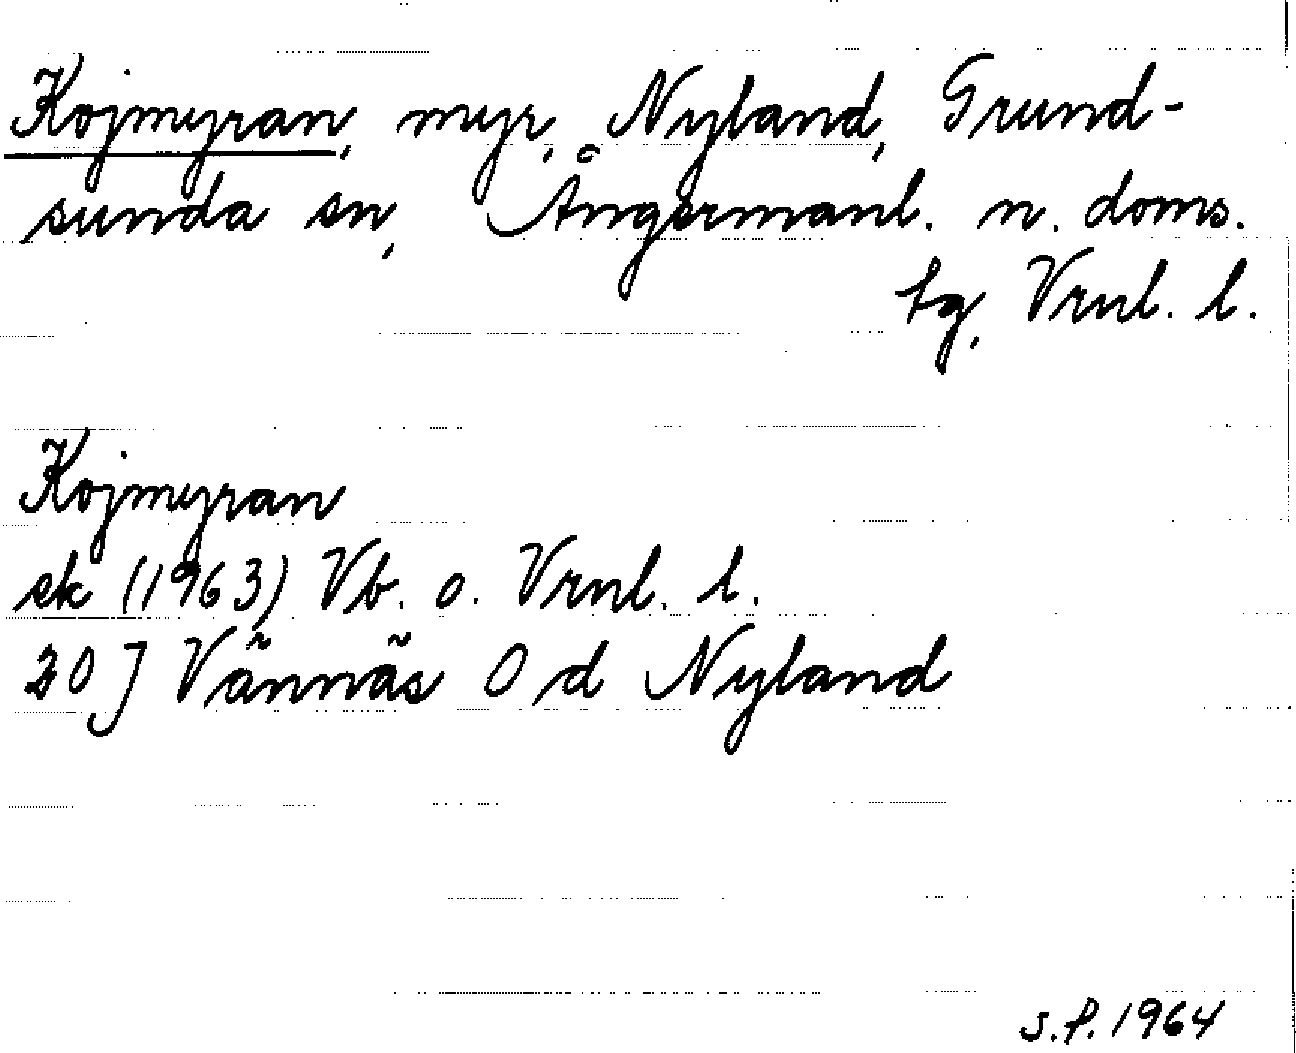 Kojmyran, myr, Nyland, Grund-
sunda sn, Ångermanl. n. doms.
tg, Vrnl. l.
Kojmyran
ek (1963) Vb. o. Vrnl. l.
20 J Vännäs O d Nyland
S.P. 1964